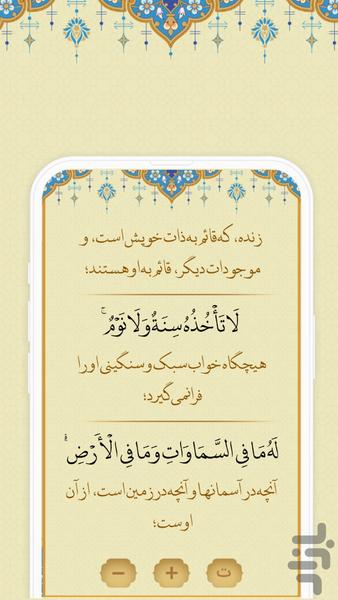 زنده، که قائم به ذات خویش است، و
موجودات دیگر، قائم به او هستند؛
لَا تَأْخُذُهُ سِنَةٌ وَلَا نَوْمٌ ۚ
هیچگاه خواب سبک و سنگینی او را
فرانمی‌گیرد؛
لَهُ مَا فِي السَّمَاوَاتِ وَمَا فِي الْأَرْضِ ۗ
آنچه در آسمانها و آنچه در زمین است، از آن
اوست؛
− + ت
بازار